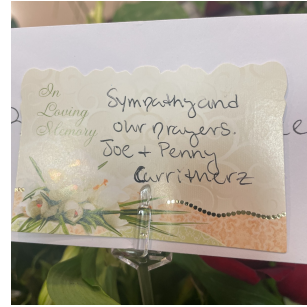 In
Loving
Memory
Sympathy and
our prayers.
Joe + Penny
Carritherz